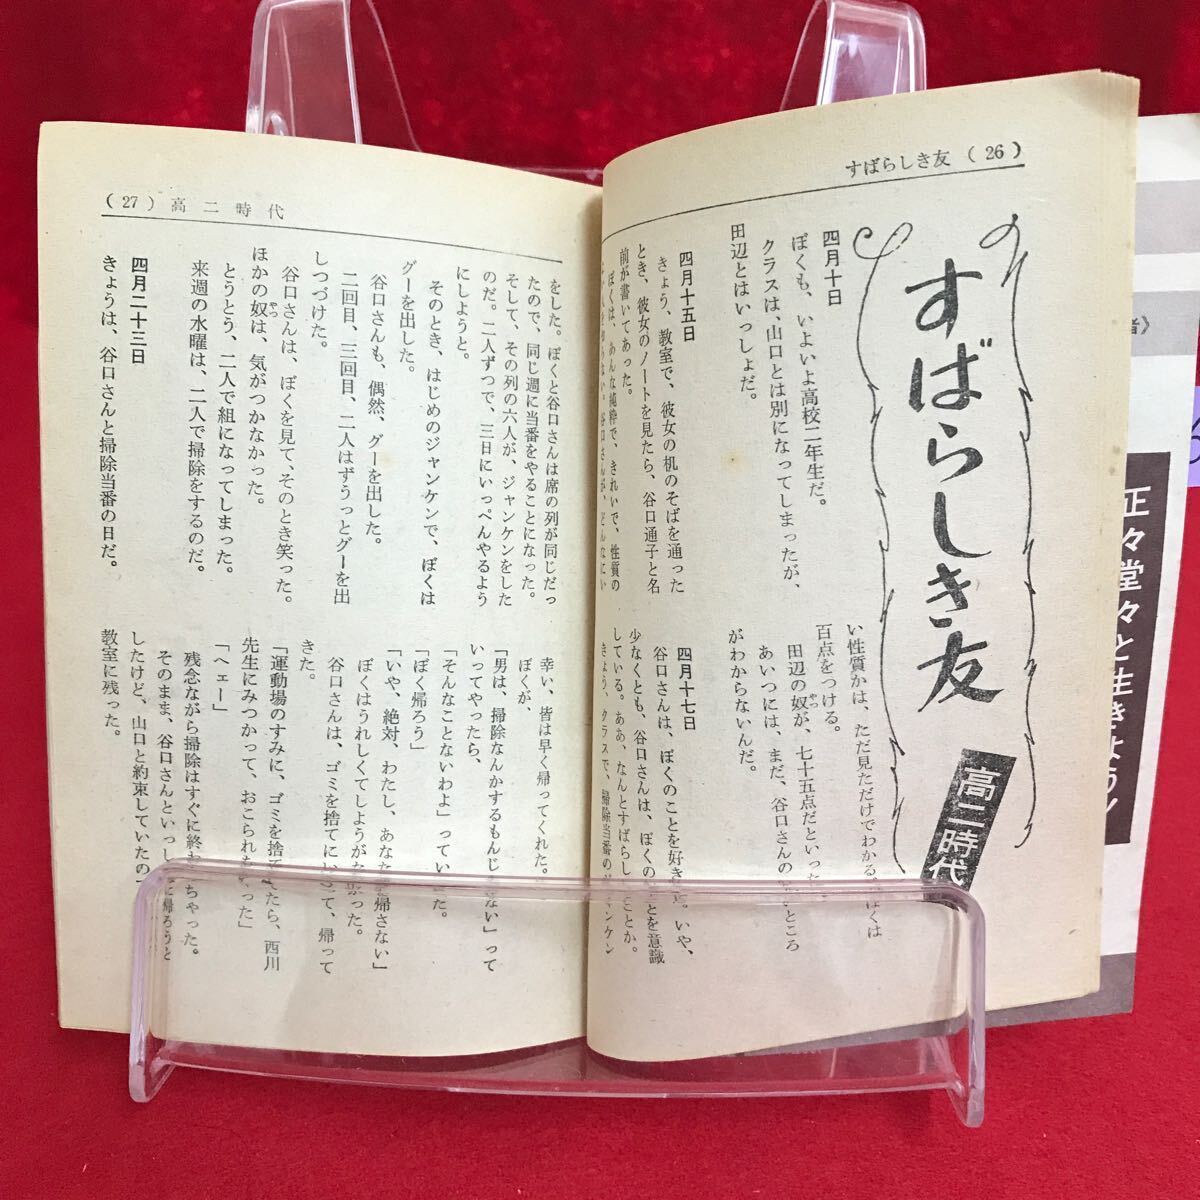 すばらしき友 (26)
すばらしき友
高二時代
四月十日
ぼくも、いよいよ高校二年生だ。
クラスは、山口とは別になってしまったが、
田辺とはいっしょだ。
四月十五日
きょう、教室で、彼女の机のそばを通った
とき、彼女のノートを見たら、谷口通子と名
前が書いてあった。
ぼくは、あんな純粋で、きれいで、性質の
谷口さんが、どんなにい
い性質かは、ただ見ただけでわかる。ぼくは
百点をつける。
田辺の奴が、七十五点だといった。
やつ
あいつには、まだ、谷口さんのいいところ
がわからないんだ。
四月十七日
谷口さんは、ぼくのことを好きだ。いや、
少なくとも、谷口さんは、ぼくのことを意識
している。ああ、なんとすばらしいことか。
きょう、クラスで、掃除当番のジャンケン
(27) 高二時代
をした。ぼくと谷口さんは席の列が同じだっ
たので、同じ週に当番をやることになった。
そして、その列の六人が、ジャンケンをした
のだ。二人ずつで、三日にいっぺんやるよう
にしようと。
そのとき、はじめのジャンケンで、ぼくは
グーを出した。
谷口さんも、偶然、グーを出した。
二回目、三回目、二人はずうっとグーを出
しつづけた。
谷口さんは、ぼくを見て、そのとき笑った。
ほかの奴は、気がつかなかった。
やつ
とうとう、二人で組になってしまった。
来週の水曜は、二人で掃除をするのだ。
四月二十三日
きょうは、谷口さんと掃除当番の日だ。
幸い、皆は早く帰ってくれた。
ぼくが、
「男は、掃除なんかするもんじゃない」って
いってやったら、
「そんなことないわよ」っていった。
「ぼく帰ろう」
「いや、絶対、わたし、あなたを帰さない」
ぼくはうれしくてしようがなかった。
谷口さんは、ゴミを捨てにいって、帰って
きた。
「運動場のすみに、ゴミを捨てたら、西川
先生にみつかって、おこられちゃった」
「ヘェー」
残念ながら掃除はすぐに終わっちゃった。
そのまま、谷口さんといっしょに帰ろうと
したけど、山口と約束していたので
教室に残った。
者》
正々堂々と生きよう!